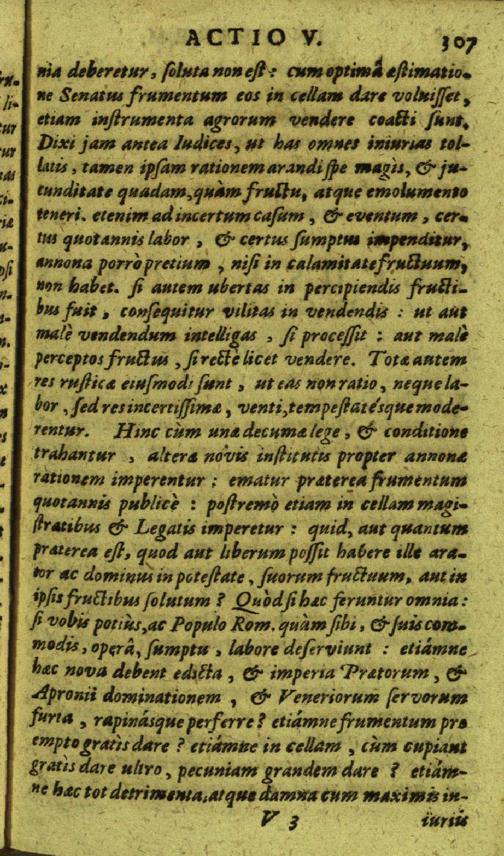 ACTIO V. 307
nia deberetur, soluta non est: cum optimâ æstimatio-
ne Senatus frumentum eos in cellam dare voluisset,
etiam instrumenta agrorum vendere coacti sunt.
Dixi jam antea Iudices, ut has omnes iniurias tol-
latis, tamen ipsam rationem arandi spe magis, & ju-
cunditate quadam, quàm fructu, atque emolumento
teneri. etenim ad incertum casum, & eventum, cer-
tus quotannis labor, & certus sumptus impenditur,
annona porrò pretium, nisi in calamitate fructuum,
non habet. si autem ubertas in percipiendis fructi-
bus fuit, consequitur vilitas in vendendis: ut aut
malè vendendum intelligas, si processit: aut malè
perceptos fructus, si rectè licet vendere. Totæ autem
res rusticæ eiusmodi sunt, ut eas non ratio, neque la-
bor, sed res incertissimæ, venti, tempestatésque mode-
rentur. Hinc cùm unæ decumæ lege, & conditione
trahantur, alteræ novis institutis propter annonæ
rationem imperentur: ematur præterea frumentum
quotannis publicè: postremò etiam in cellam magi-
stratibus & Legatis imperetur: quid, aut quantum
præterea est, quod aut liberum possit habere ille ara-
tor ac dominus in potestate, suorum fructuum, aut in
ipsis fructibus solutum? Quòd si hæc feruntur omnia:
si vobis potius, ac Populo Rom. quàm sibi, & suis com-
modis, operâ, sumptu, labore deserviunt: etiámne
hæc nova debent edicta, & imperia Prætorum, &
Apronii dominationem, & Veneriorum servorum
furta, rapinásque perferre? etiámne frumentum pro
empto gratìs dare? etiámne in cellam, cùm cupiant
gratìs dare ultro, pecuniam grandem dare? etiám-
ne hæc tot detrimenta, atque damna cum maximis in-
V 3 iuriis